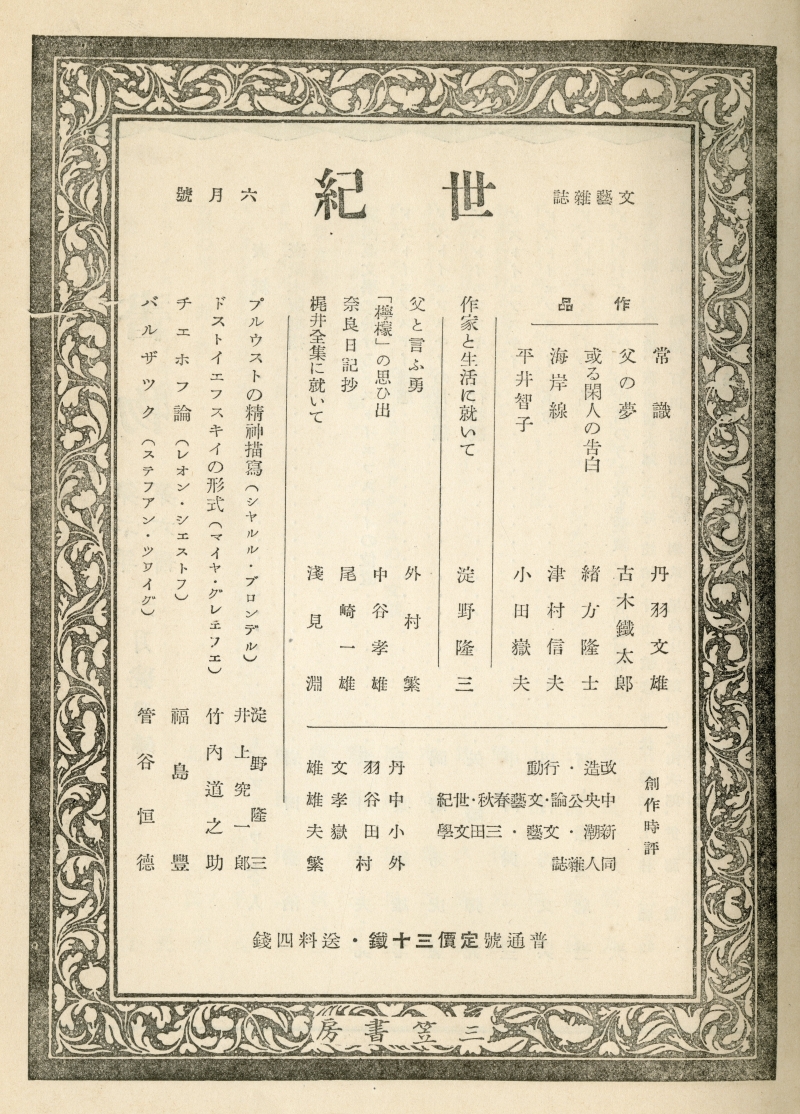 文藝雜誌
世紀
六月號
作品
常識 丹羽文雄
父の夢 古木鐵太郎
或る閑人の告白 緒方隆士
海岸線 津村信夫
平井智子 小田嶽夫
作家と生活に就いて 淀野隆三
父と言ふ勇 外村繁
「檸檬」の思ひ出 中谷孝雄
奈良日記抄 尾崎一雄
梶井全集に就いて 淺見淵
プルウストの精神描寫(シヤルル・ブロンデル) 淀野隆三 井上究一郎
ドストイエフスキイの形式(マイヤ・グレエフエ) 竹內道之助
チエホフ論(レオン・シエストフ) 福島豐
バルザツク(ステフアン・ツワイグ) 管谷恒德
創作時評
改造・行動 丹羽文雄
中央公論・文藝春秋・世紀 中谷孝雄
新潮・文藝・三田文學 小田嶽夫
同人雜誌 外村繁
普通號定價三十錢・送料四錢
三笠書房